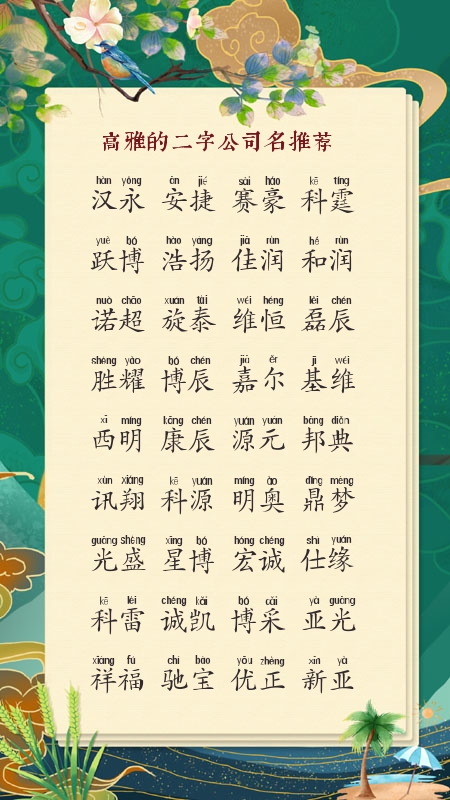 高雅的二字公司名推荐
hàn yǒng ān jié sài háo kē tíng
汉永 安捷 赛豪 科霆
yuè bó hào yáng jiā rùn hé rùn
跃博 浩扬 佳润 和润
nuò chāo xuán tài wéi héng lěi chén
诺超 旋泰 维恒 磊辰
shèng yào bó chén jiā ěr jī wéi
胜耀 博辰 嘉尔 基维
xī míng kāng chén yuán yuán bāng diǎn
西明 康辰 源元 邦典
xùn xiáng kē yuán míng ào dǐng mèng
讯翔 科源 明奥 鼎梦
guāng shèng xīng bó hóng chéng shì yuán
光盛 星博 宏诚 仕缘
kē léi chéng kǎi bó cǎi yà guāng
科雷 诚凯 博采 亚光
xiáng fú chí bǎo yōu zhèng xīn yà
祥福 驰宝 优正 新亚